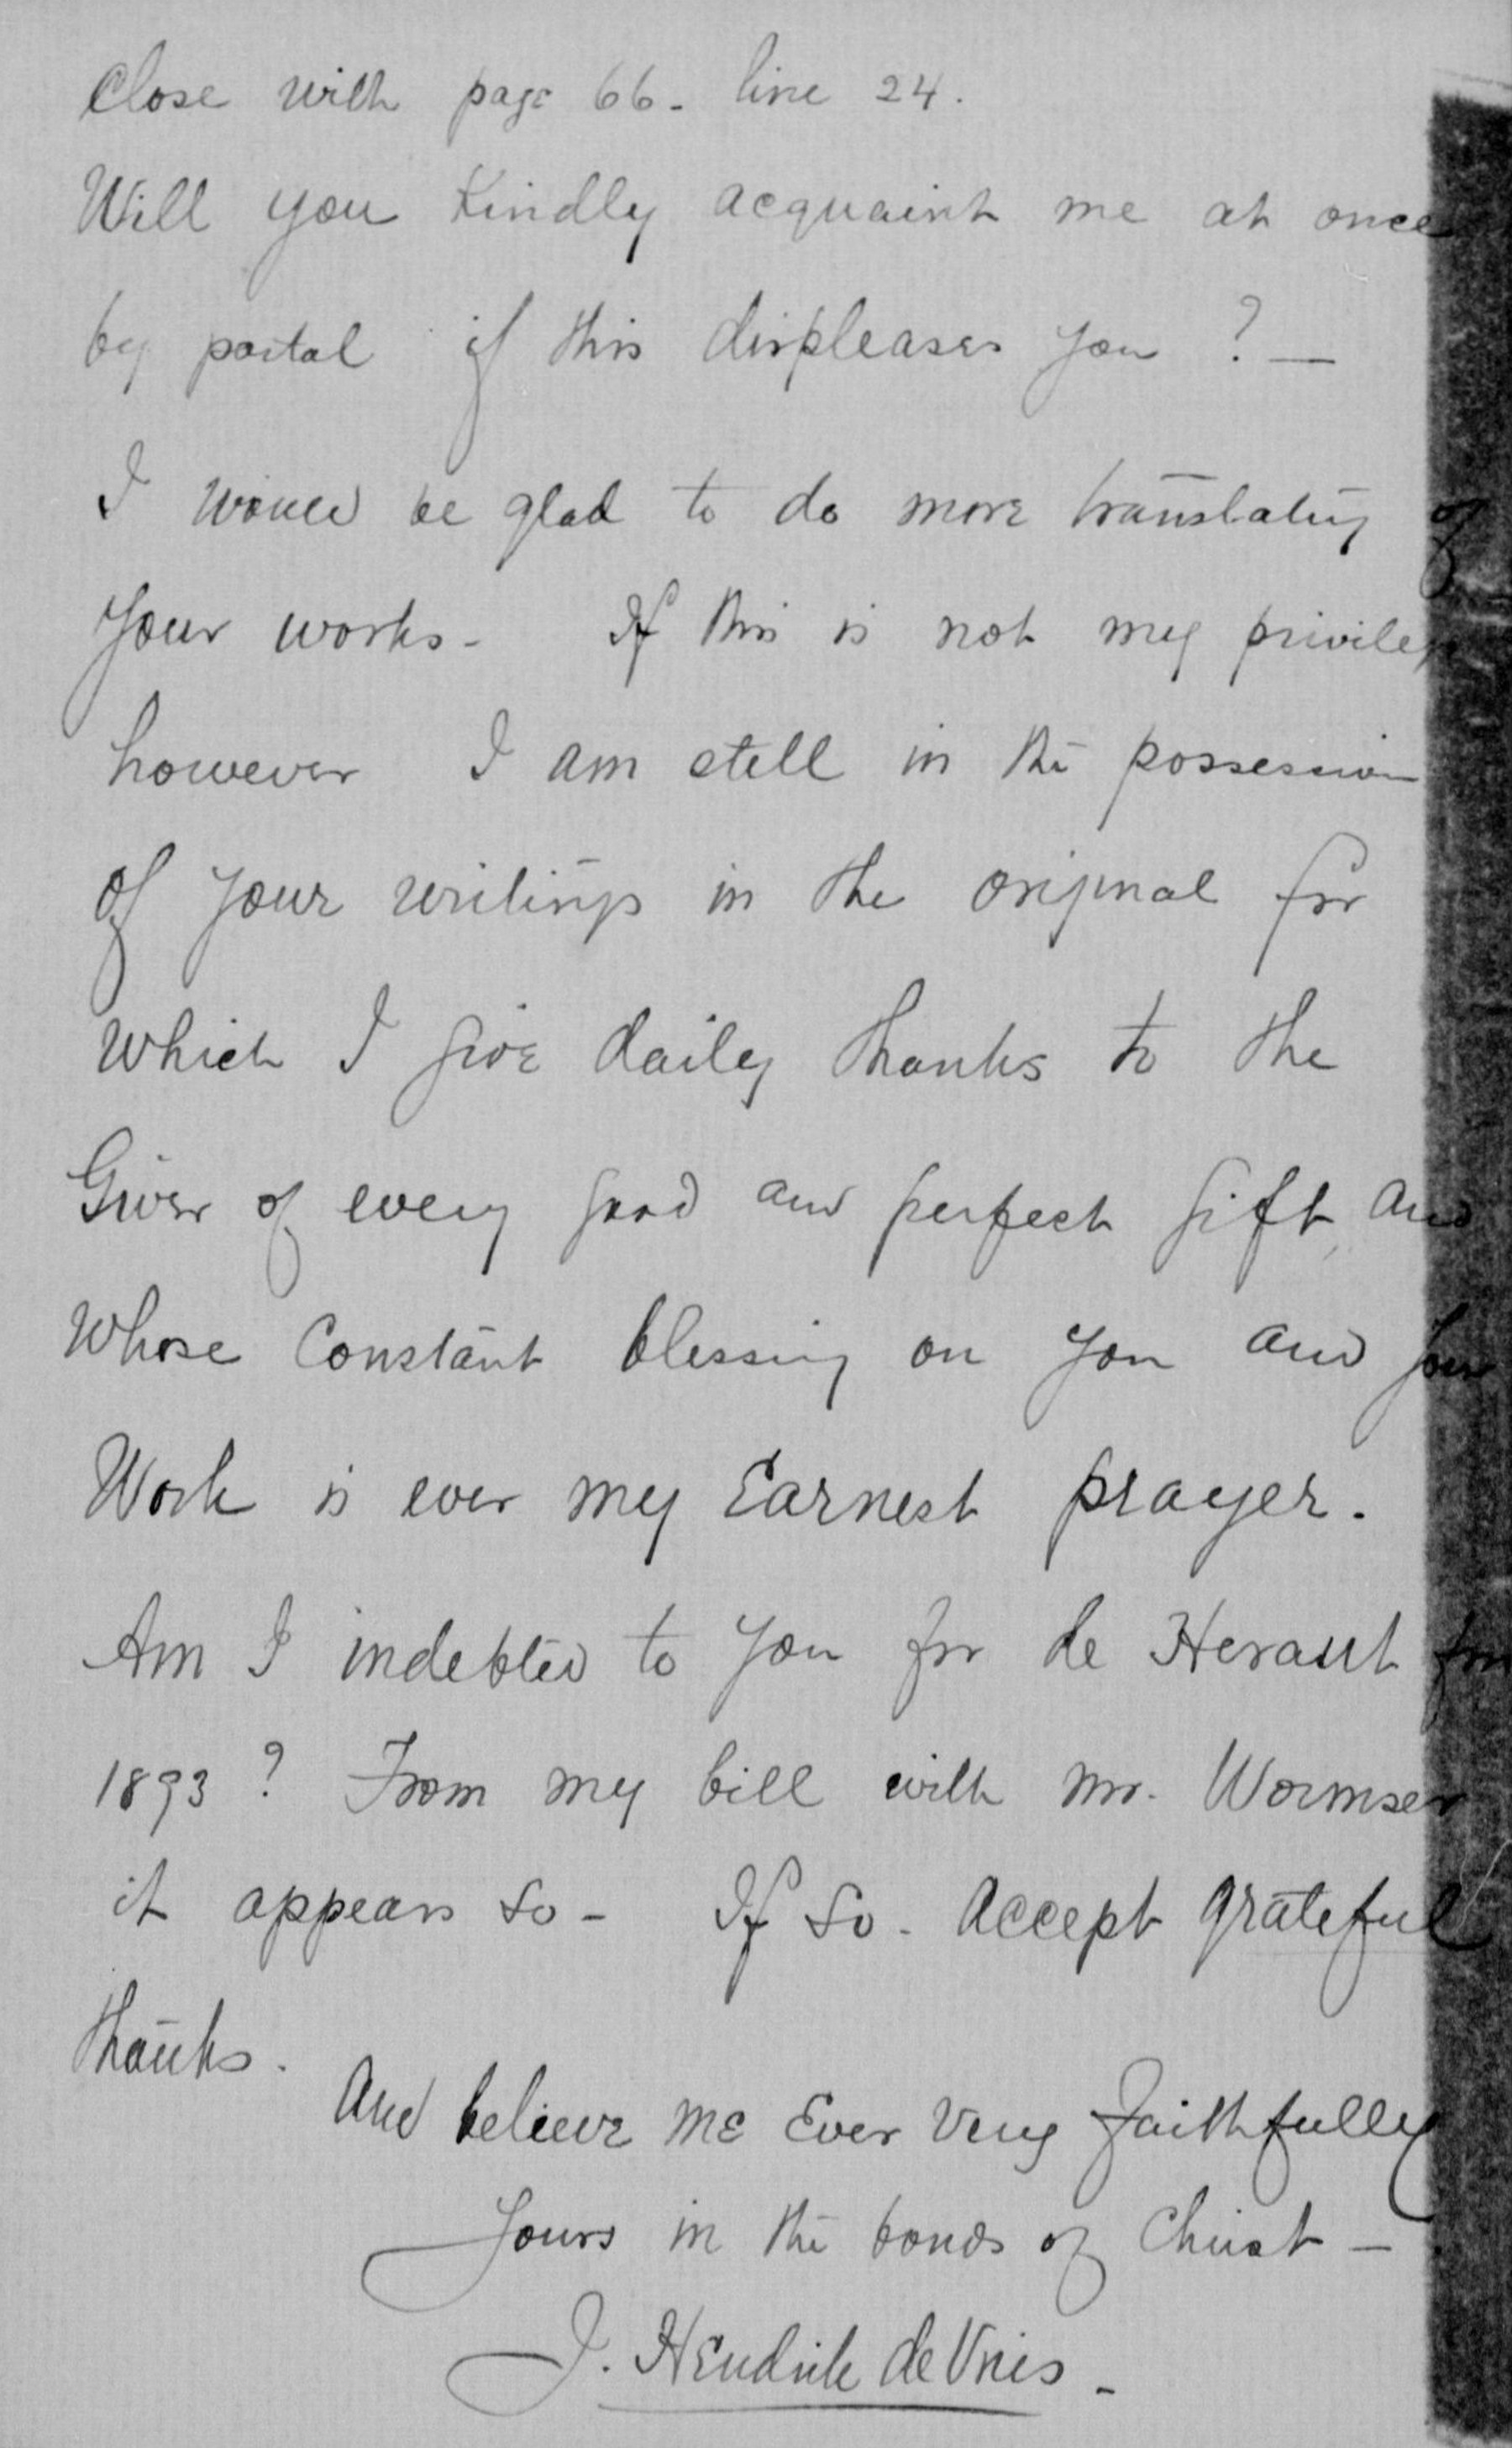 Close with page 66 - line 24.
Will you Kindly acquaint me at once
by postal if this displeases you ? —
I would be glad to do more translating of
your works - If this is not my privilege
however I am still in the possession
of your writings in the original for
which I give daily thanks to the
Giver of every good and perfect gift, and
Whose Constant blessing on you and your
Work is ever my Earnest prayer.
Am I indebted to you for de Heraut from
1893 ? From my bill with Mr. Wormser
it appears so - If so - Accept grateful
thanks.
And believe me Ever Very faithfully
Yours in the bonds of Christ —
J. Hendrik de Vries -